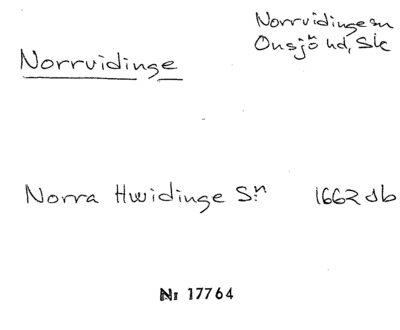 Norrvidinge sn
Onsjö hd, Sk
Norrvidinge
Norra Hwidinge Sn 1662 Jb
Nr 17764